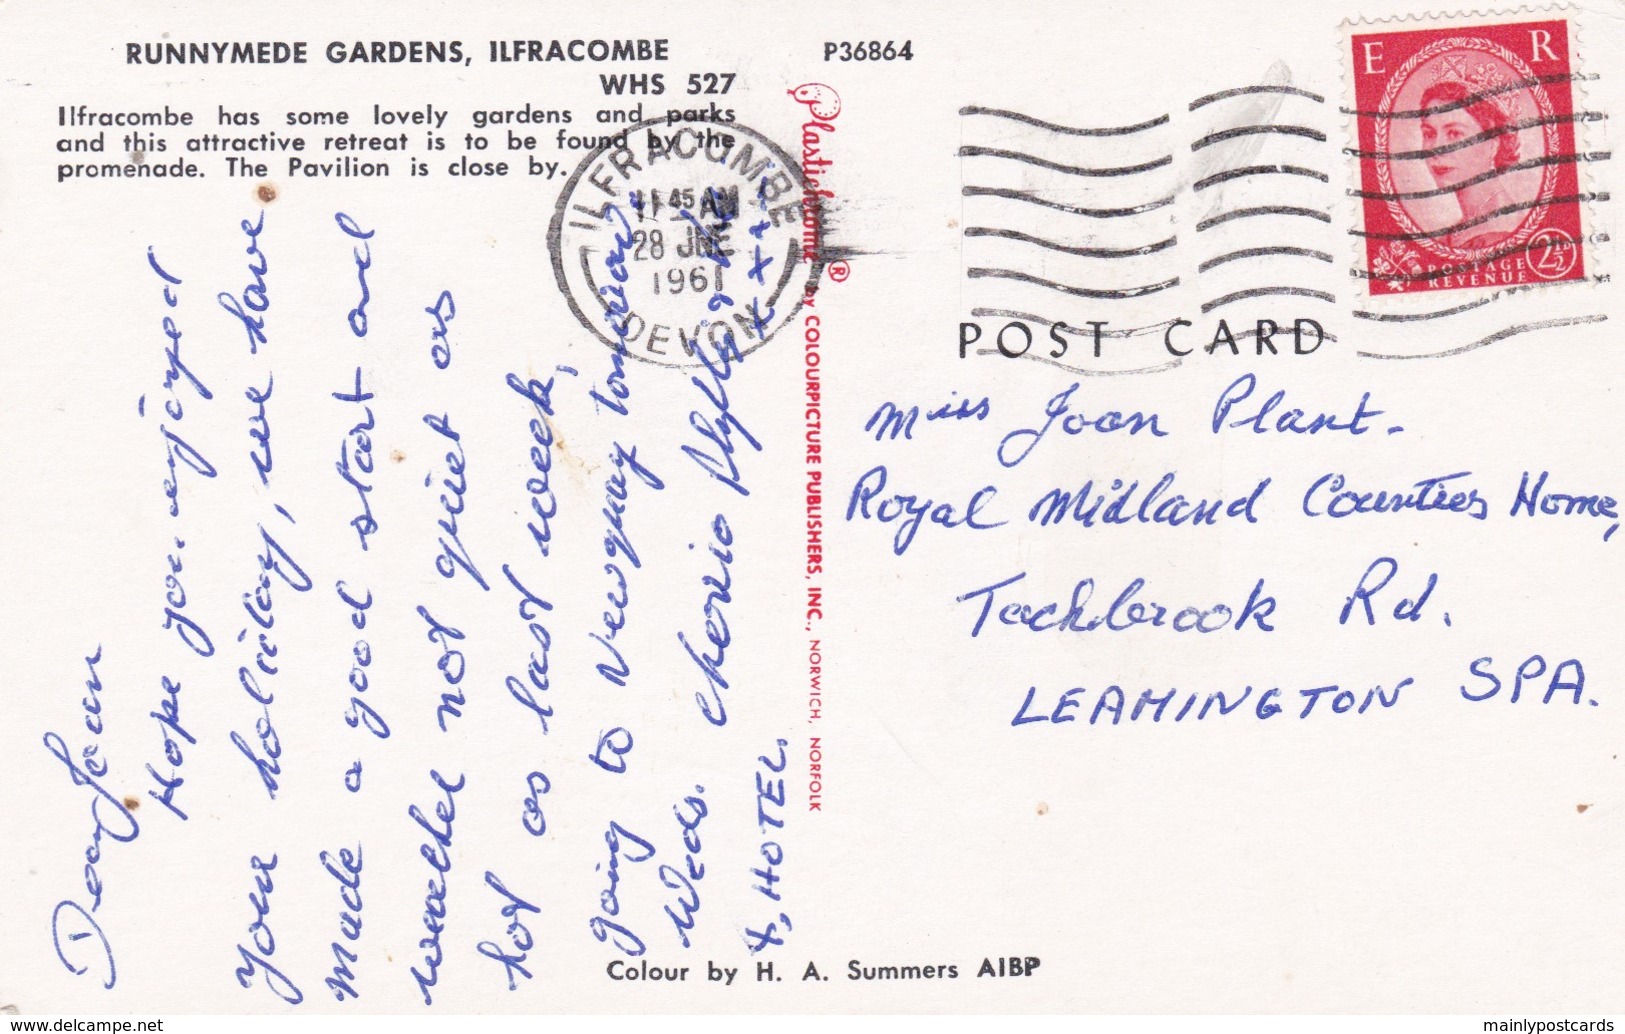 RUNNYMEDE GARDENS, ILFRACOMBE
WHS 527
Ilfracombe has some lovely gardens and parks
and this attractive retreat is to be found by the
promenade. The Pavilion is close by.
P36864
Dear Joan
Hope you enjoyed
your holiday, we have
made a good start and
weather not quiet as
hot as last week,
going to Newquay tomorrow.
Weds. cherio
x x x
&, HOTEL.
ILFRACOMBE
11 45 AM
28 JNE
1961
DEVON
Plastichrome ® by COLOURPICTURE PUBLISHERS, INC., NORWICH, NORFOLK
E R
POSTAGE
REVENUE
2½
POST CARD
Miss Joan Plant.
Royal Midland Counties Home,
Tachbrook Rd.
LEAMINGTON SPA.
Colour by H. A. Summers AIBP
www.delcampe.net
mainlypostcards